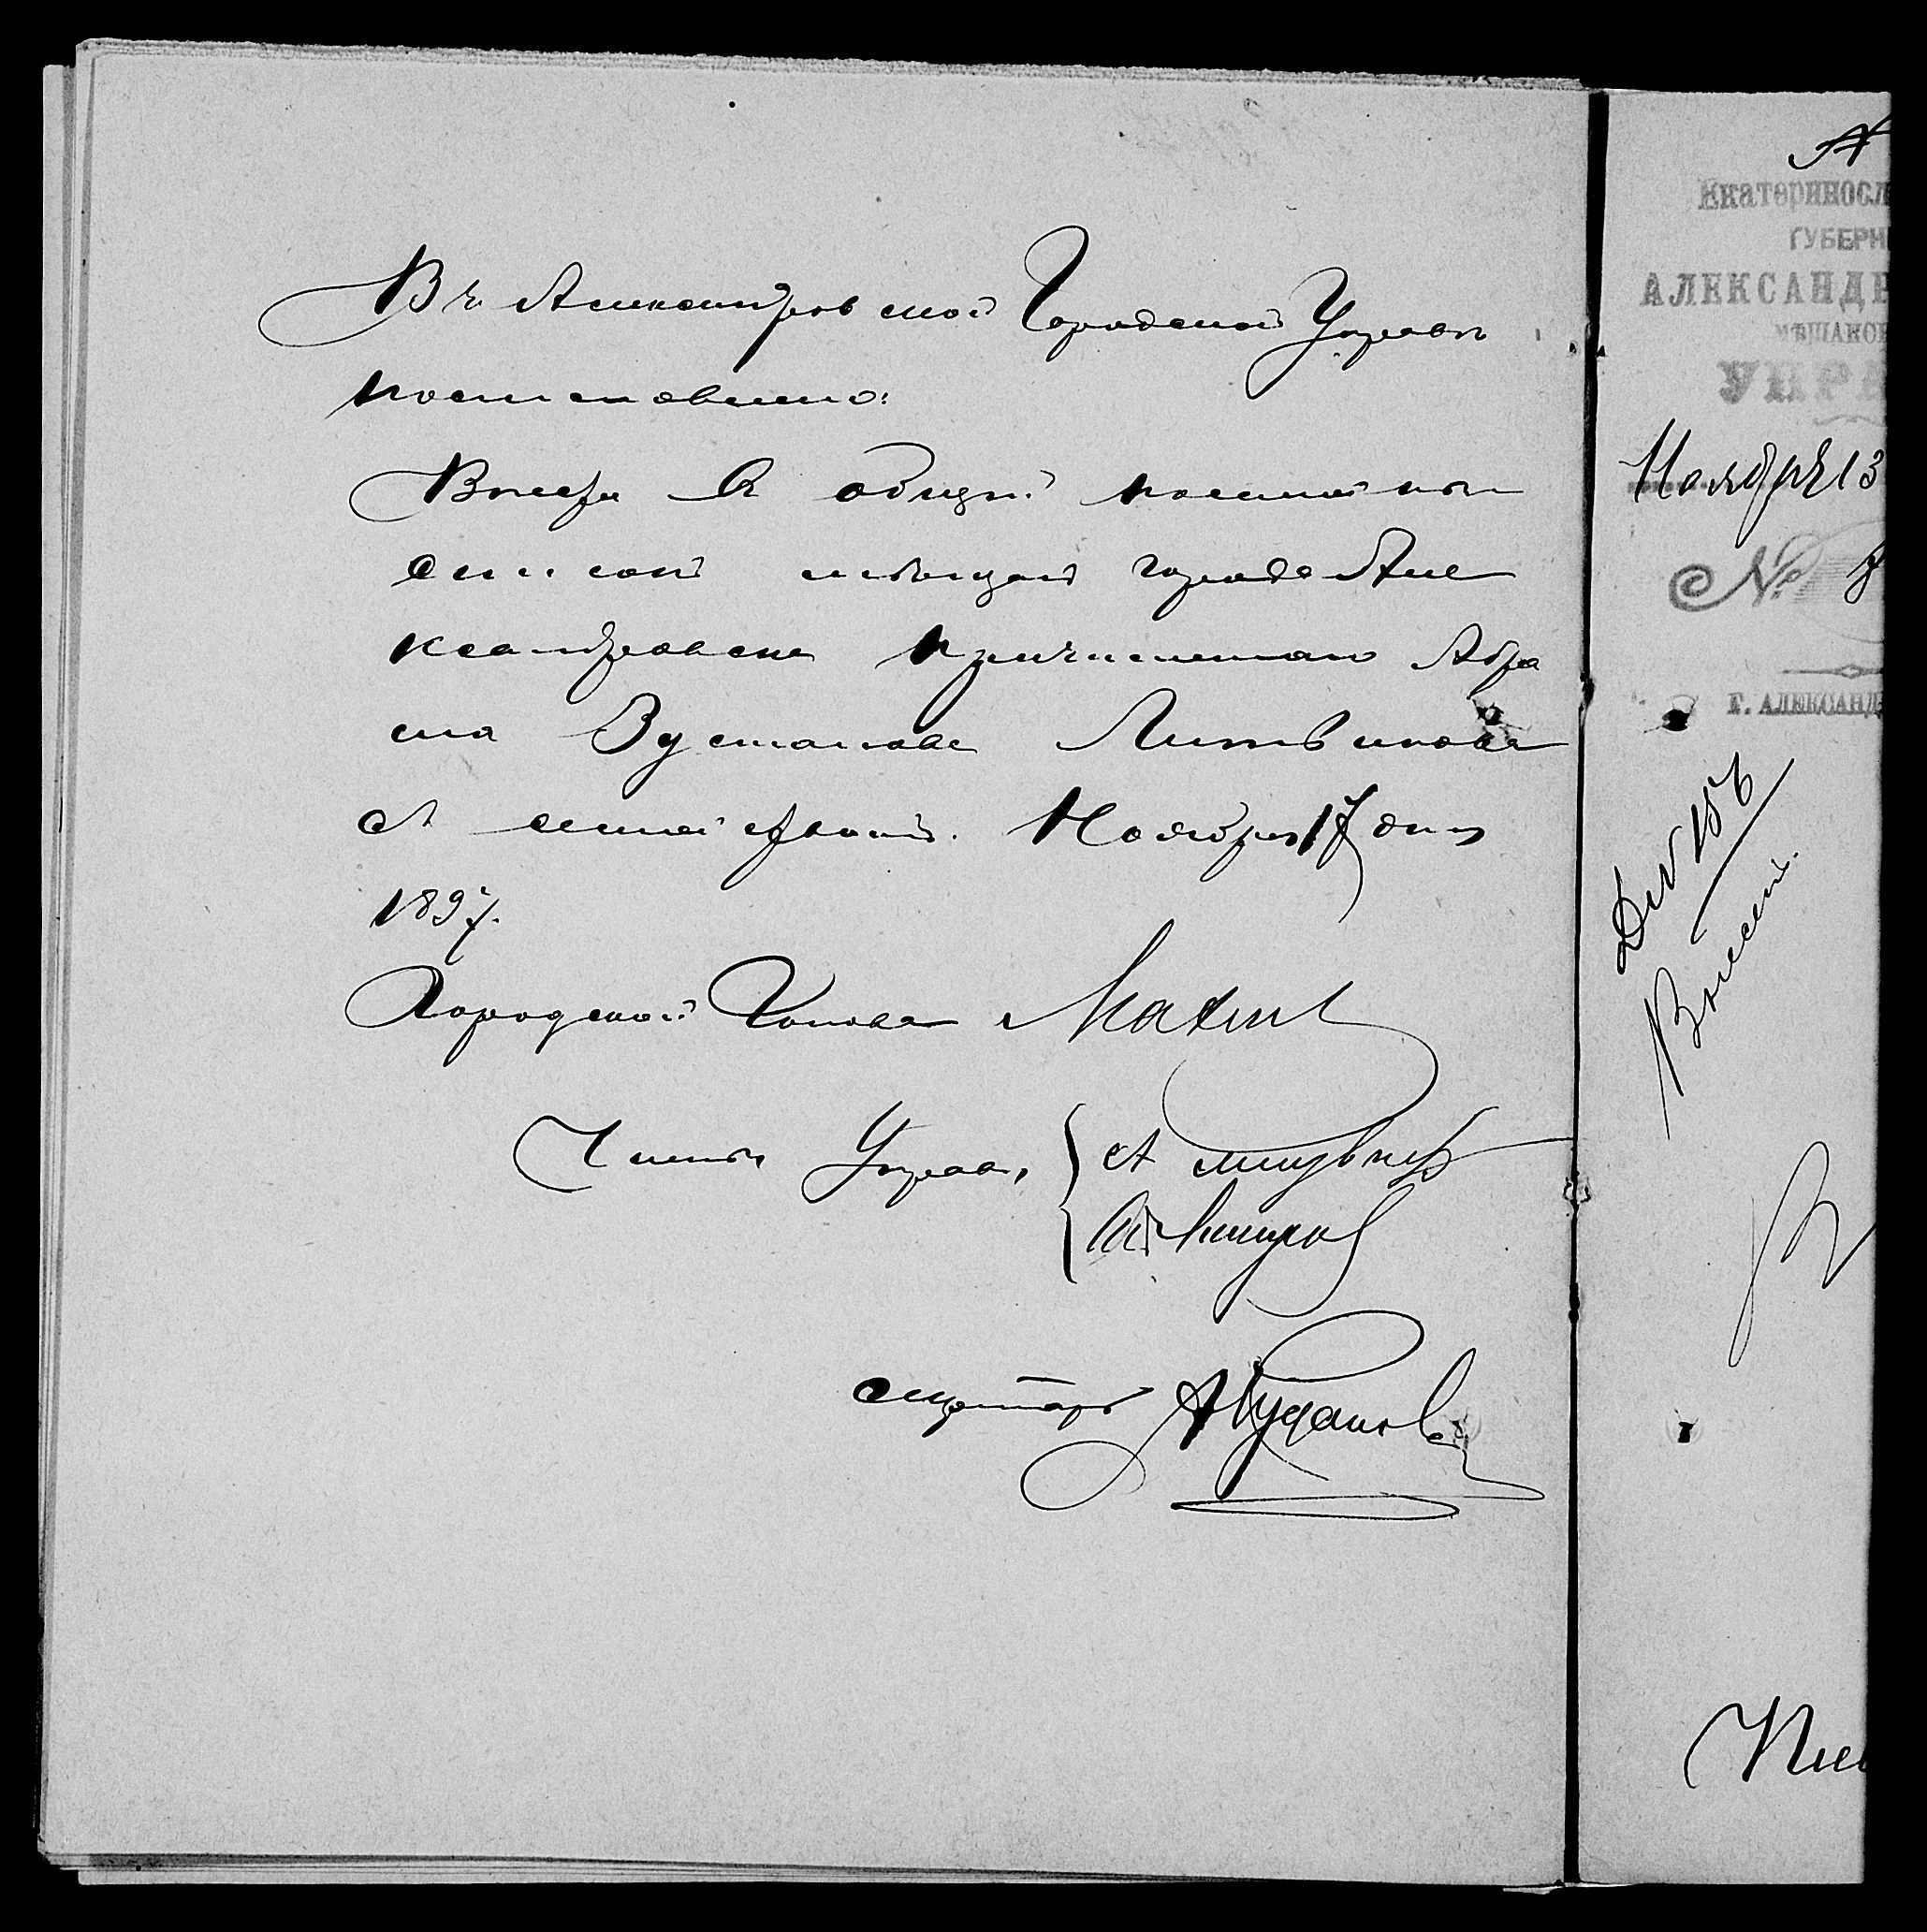 Въ Александровской Городской Управѣ
постановлено:
Внести въ общій посемейный
списокъ мѣщанъ города Але
ксандровска причисленнаго Абра
ма Зусманова Литвинова
съ семействомъ. Ноября 17 дня
1897.
Городской Голова Махно
Члены Управы
Секретарь
А
Екатериносл
ГУБЕРН
АЛЕКСАНДР
МѢЩАНСК
УПРА
Ноября 13
№
Г. АЛЕКСАНД
156
Внесенъ.